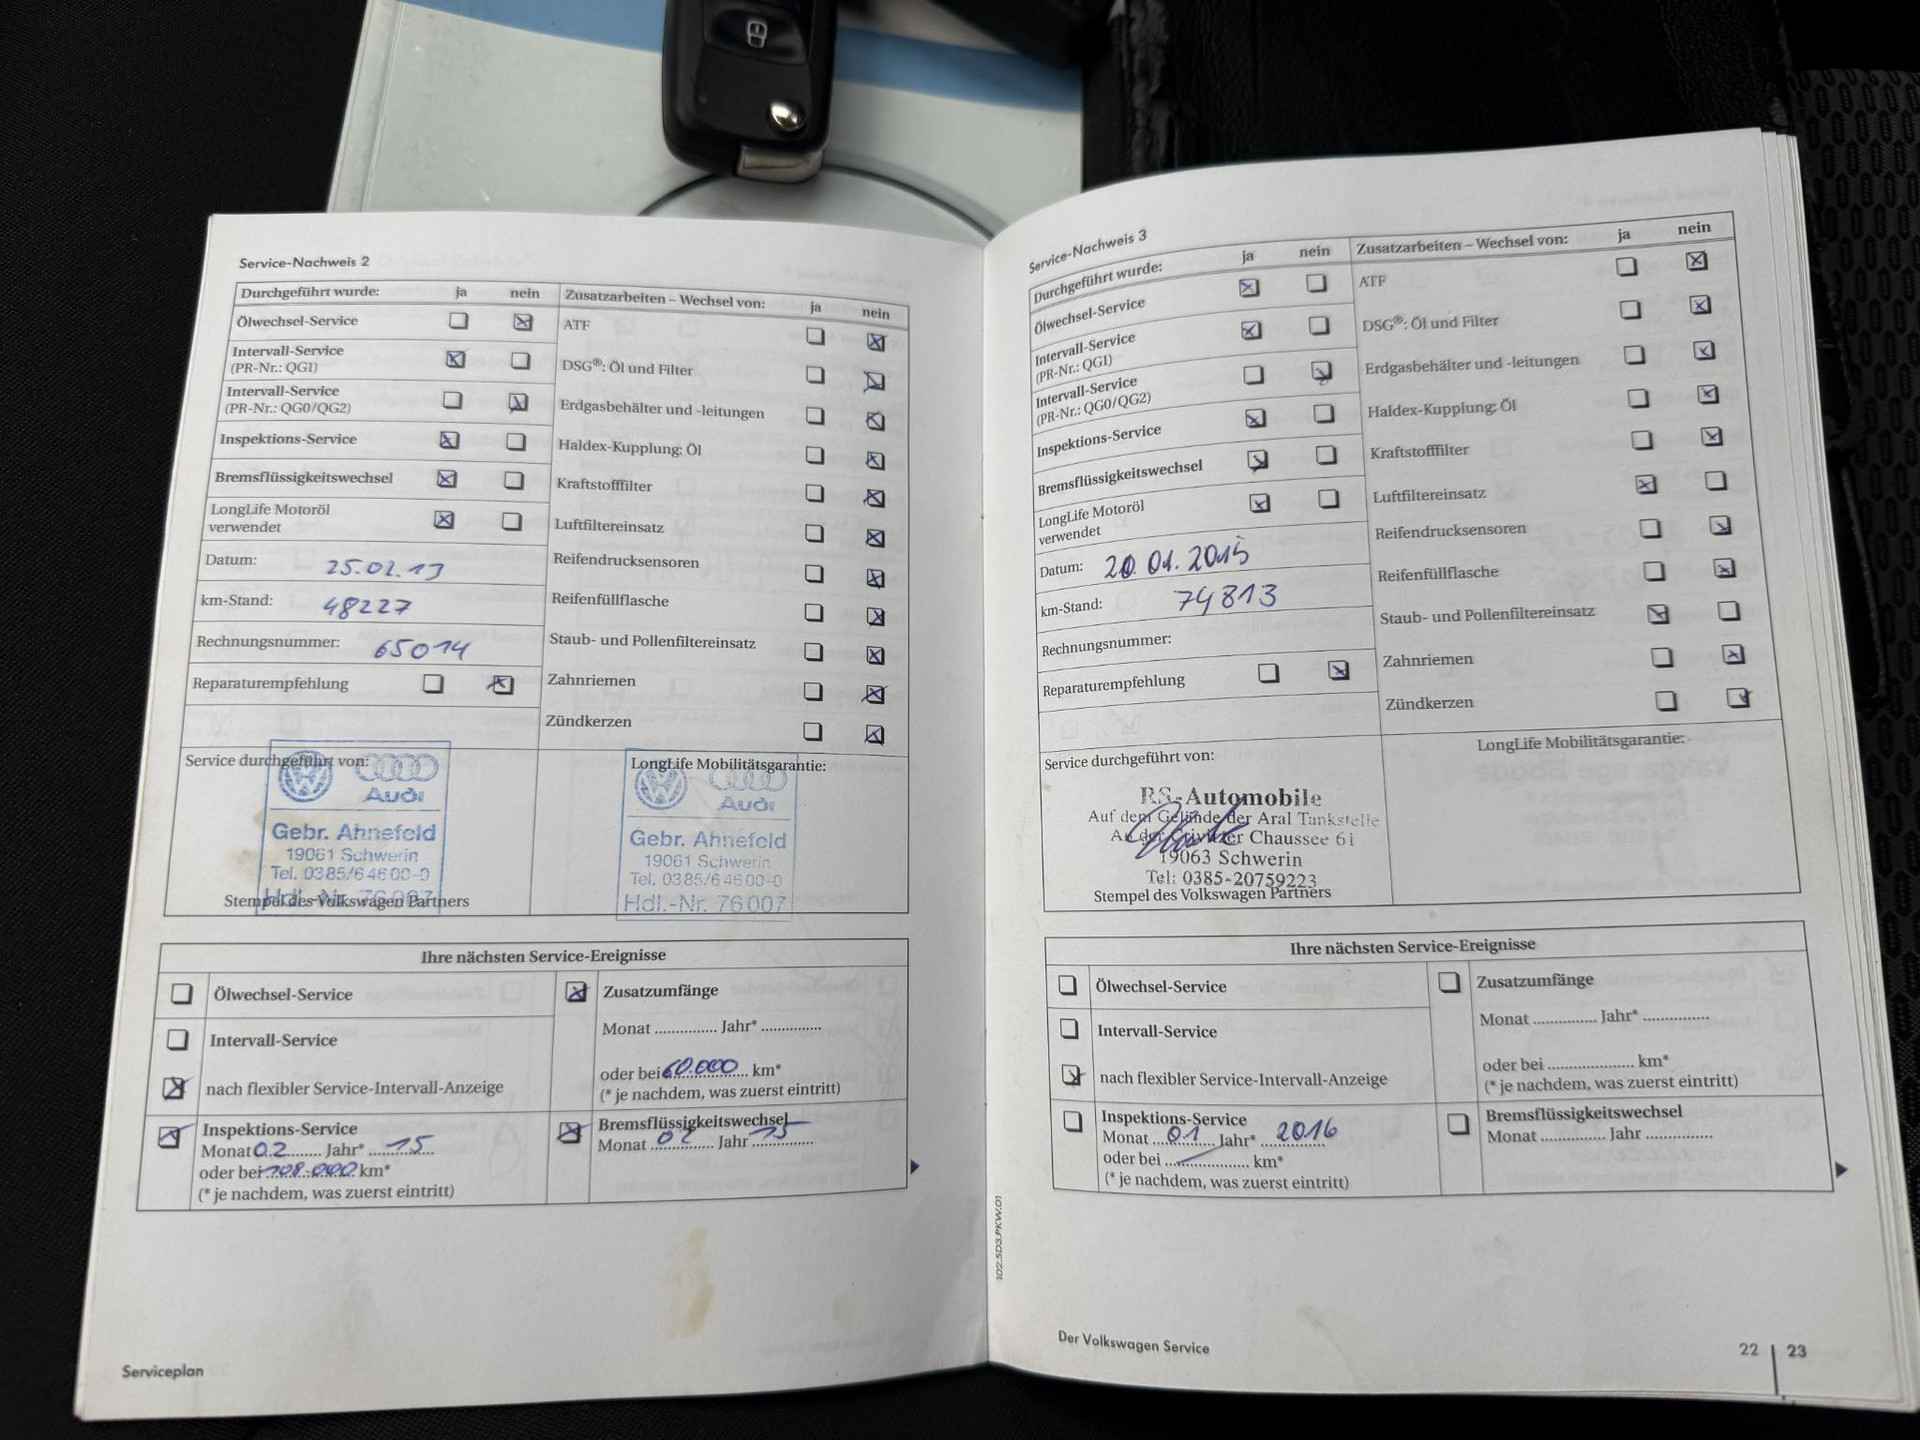 Service-Nachweis 2
Durchgeführt wurde: ja nein
Ölwechsel-Service
Intervall-Service
(PR-Nr.: QG1)
Intervall-Service
(PR-Nr.: QG0/QG2)
Inspektions-Service
Bremsflüssigkeitswechsel
LongLife Motoröl
verwendet
Datum: 25.02.13
km-Stand: 48227
Rechnungsnummer: 65014
Reparaturempfehlung
Zusatzarbeiten – Wechsel von: ja nein
ATF
DSG®: Öl und Filter
Erdgasbehälter und -leitungen
Haldex-Kupplung: Öl
Kraftstofffilter
Luftfiltereinsatz
Reifendrucksensoren
Reifenfüllflasche
Staub- und Pollenfiltereinsatz
Zahnriemen
Zündkerzen
Service durchgeführt von:
Audi
Gebr. Ahnefeld
19061 Schwerin
Tel. 0385/64600-0
Hdl.-Nr. 76007
Stempel des Volkswagen Partners
LongLife Mobilitätsgarantie:
Audi
Gebr. Ahnefeld
19061 Schwerin
Tel. 0385/64600-0
Hdl.-Nr. 76007
Ihre nächsten Service-Ereignisse
Ölwechsel-Service
Intervall-Service
nach flexibler Service-Intervall-Anzeige
Inspektions-Service
Monat 02 Jahr* 15
oder bei 108.000 km*
(* je nachdem, was zuerst eintritt)
Zusatzumfänge
Monat Jahr*
oder bei 60.000 km*
(* je nachdem, was zuerst eintritt)
Bremsflüssigkeitswechsel
Monat 02 Jahr 15
Serviceplan
Service-Nachweis 3
Durchgeführt wurde: ja nein
Ölwechsel-Service
Intervall-Service
(PR-Nr.: QG1)
Intervall-Service
(PR-Nr.: QG0/QG2)
Inspektions-Service
Bremsflüssigkeitswechsel
LongLife Motoröl
verwendet
Datum: 20.01.2015
km-Stand: 74813
Rechnungsnummer:
Reparaturempfehlung
Zusatzarbeiten – Wechsel von: ja nein
ATF
DSG®: Öl und Filter
Erdgasbehälter und -leitungen
Haldex-Kupplung: Öl
Kraftstofffilter
Luftfiltereinsatz
Reifendrucksensoren
Reifenfüllflasche
Staub- und Pollenfiltereinsatz
Zahnriemen
Zündkerzen
Service durchgeführt von:
RS-Automobile
Auf dem Gelände der Aral Tankstelle
An der Crivitzer Chaussee 61
19063 Schwerin
Tel: 0385-20759223
Stempel des Volkswagen Partners
LongLife Mobilitätsgarantie:
Ihre nächsten Service-Ereignisse
Ölwechsel-Service
Intervall-Service
nach flexibler Service-Intervall-Anzeige
Inspektions-Service
Monat 01 Jahr* 2016
oder bei km*
(* je nachdem, was zuerst eintritt)
Zusatzumfänge
Monat Jahr*
oder bei km*
(* je nachdem, was zuerst eintritt)
Bremsflüssigkeitswechsel
Monat Jahr
102.5D3.PKW.01
Der Volkswagen Service
22 | 23